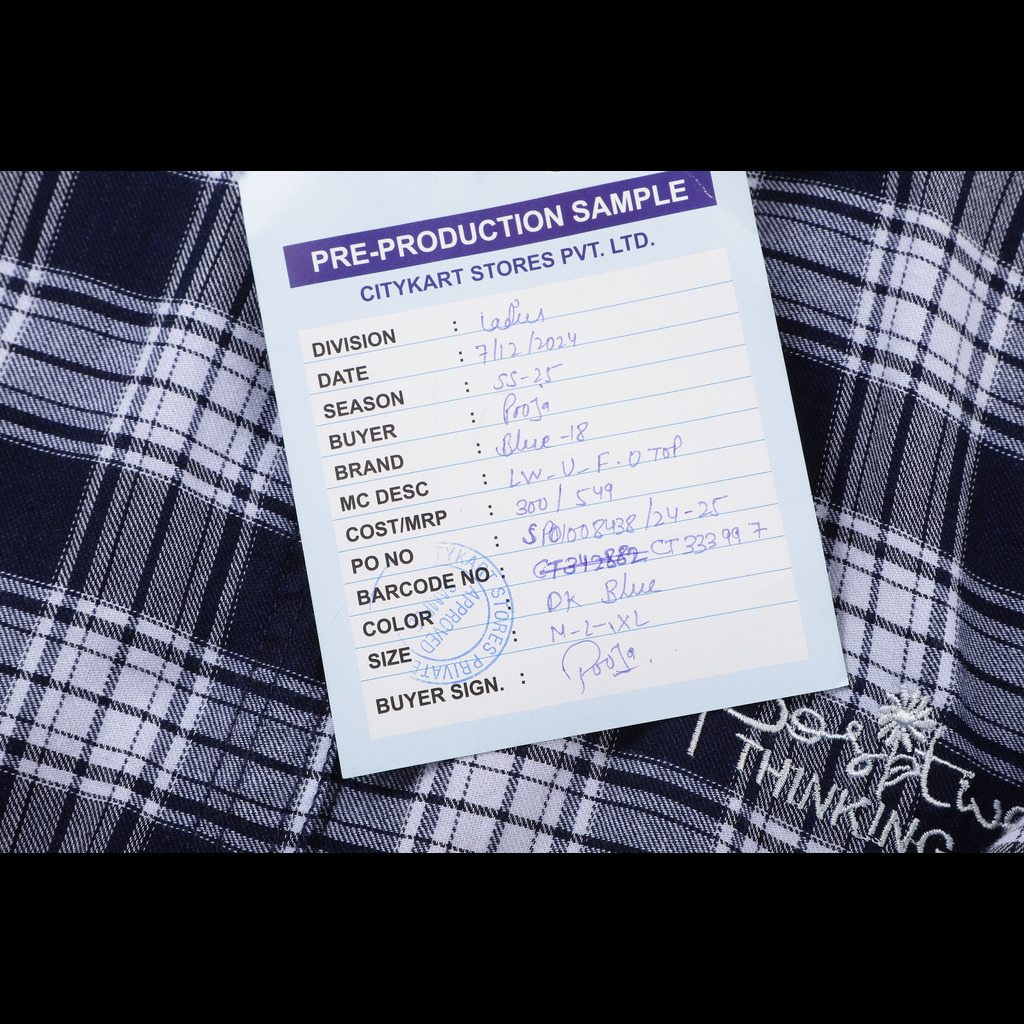 PRE-PRODUCTION SAMPLE
CITYKART STORES PVT. LTD.
DIVISION : Ladies
DATE : 7/12/2024
SEASON : SS-25
BUYER : Pooja
BRAND : Blue-18
MC DESC : LW_U_F.O TOP
COST/MRP : 300/549
PO NO : SPO1008438/24-25
BARCODE NO : CT333997
COLOR : DK Blue
SIZE : M-L-XL
BUYER SIGN. : Pooja.
STORES PRIVATE
APPROVED
THINKING